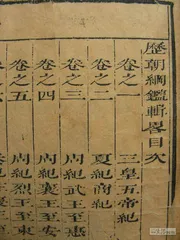 歷朝綱鑑輯畧目次
卷之一
三皇五帝紀
卷之二
夏紀商紀
卷之三
周紀武王至惠
卷之四
周紀襄王至安
卷之五
周紀烈王至東